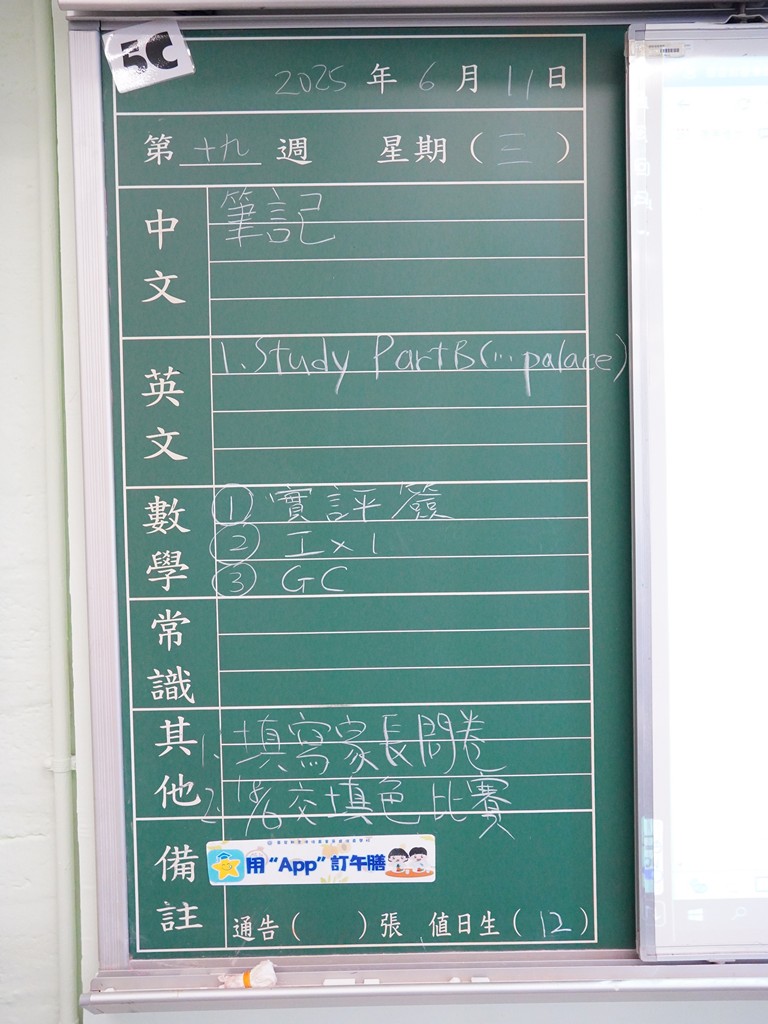 5C
2025 年 6 月 11 日
第 十九 週 星期 ( 三 )
中文
筆記
英文
1. Study Part B (… palace)
數學
① 實評簽
② 工 x 1
③ GC
常識
其他
1. 填寫家長問卷
2. 交填色比賽
備註
用 “App” 訂午膳
通告 ( ) 張 值日生 ( 12 )